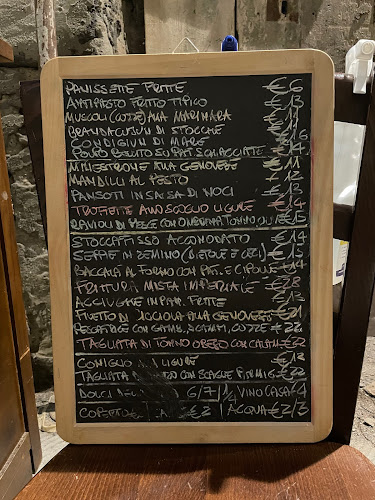 PANISSETTE FRITTE €6
ANTIPASTO FRITTO TIPICO €13
MUSCOLI (COZZE) ALLA MARINARA €11
BRANDACUJUN DI STOCCHE
CONDIGIUN DI MARE €16
POLPO BOLLITO SU PAT. SCHIACCIATE €14
MINESTRONE ALLA GENOVESE €11
MANDILLI AL PESTO €12
PANSOTI IN SALSA DI NOCI €13
TROFIETTE ALLO SCOGLIO LIGURE €14
RAVIOLI DI PESCE CON TONNO €15
STOCCAFISSO ACCOMODATO €14
SEPPIE IN ZEMINO (BIETOLE E CECI) €15
BACCALÀ AL FORNO CON PAT. E CIPOLLE €14
FRITTURA MISTA IMPERIALE €28
ACCIUGHE IN PAN. FRITTE €13
FILETTO DI ALLA GENOVESE €21
CON GAMB. SCAMPI, COZZE €22
TAGLIATA DI TONNO OBESO CON €22
CONIGLIO ALLA LIGURE €13
TAGLIATA CON SCAGLIE €22
DOLCI 6/7 ¼ VINO CASA €4
COPERTO €2 ACQUA €2/3